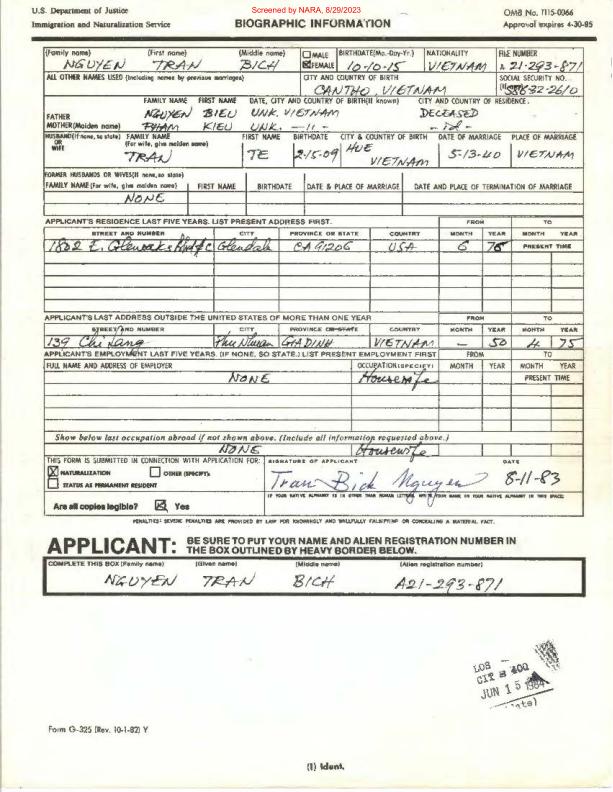 Screened by NARA, 8/29/2023
U.S. Department of Justice
Immigration and Naturalization Service
BIOGRAPHIC INFORMATION
OMB No. 1115-0066
Approval expires 4-30-85
(Family name) (First name) (Middle name) MALE FEMALE BIRTHDATE(Mo.-Day-Yr.) NATIONALITY FILE NUMBER
NGUYEN TRAN BICH 10-10-15 VIETNAM A 21-293-871
ALL OTHER NAMES USED (Including names by previous marriages) CITY AND COUNTRY OF BIRTH SOCIAL SECURITY NO.
CANTHO, VIETNAM
FAMILY NAME FIRST NAME DATE, CITY AND COUNTRY OF BIRTH(If known) CITY AND COUNTRY OF RESIDENCE.
FATHER NGUYEN BIEU UNK. VIETNAM DECEASED
MOTHER(Maiden name) PHAM KIEU UNK. -11- - id -
HUSBAND(If none, so state) OR WIFE FAMILY NAME (For wife, give maiden name) FIRST NAME BIRTHDATE CITY & COUNTRY OF BIRTH DATE OF MARRIAGE PLACE OF MARRIAGE
TRAN TE 2-15-09 HUE VIETNAM 5-13-40 VIETNAM
FORMER HUSBANDS OR WIVES(If none, so state)
FAMILY NAME (For wife, give maiden name) FIRST NAME BIRTHDATE DATE & PLACE OF MARRIAGE DATE AND PLACE OF TERMINATION OF MARRIAGE
NONE
APPLICANT'S RESIDENCE LAST FIVE YEARS. LIST PRESENT ADDRESS FIRST. FROM TO
STREET AND NUMBER CITY PROVINCE OR STATE COUNTRY MONTH YEAR MONTH YEAR
1802 E. Glenoaks Glendale CA 91206 USA 6 75 PRESENT TIME
APPLICANT'S LAST ADDRESS OUTSIDE THE UNITED STATES OF MORE THAN ONE YEAR FROM TO
STREET AND NUMBER CITY PROVINCE OR STATE COUNTRY MONTH YEAR MONTH YEAR
139 Chi Lang Phu Nhuan GIADINH VIETNAM - 50 4 75
APPLICANT'S EMPLOYMENT LAST FIVE YEARS. (IF NONE, SO STATE.) LIST PRESENT EMPLOYMENT FIRST FROM TO
FULL NAME AND ADDRESS OF EMPLOYER OCCUPATION(SPECIFY) MONTH YEAR MONTH YEAR
NONE Housewife PRESENT TIME
Show below last occupation abroad if not shown above. (Include all information requested above.)
NONE Housewife
THIS FORM IS SUBMITTED IN CONNECTION WITH APPLICATION FOR: SIGNATURE OF APPLICANT DATE
NATURALIZATION OTHER (SPECIFY):
STATUS AS PERMANENT RESIDENT
Tran Bich Nguyen 8-11-83
IF YOUR NATIVE ALPHABET IS IN OTHER THAN ROMAN LETTERS, WRITE YOUR NAME IN YOUR NATIVE ALPHABET IN THIS SPACE:
Are all copies legible? Yes
PENALTIES: SEVERE PENALTIES ARE PROVIDED BY LAW FOR KNOWINGLY AND WILLFULLY FALSIFYING OR CONCEALING A MATERIAL FACT.
APPLICANT: BE SURE TO PUT YOUR NAME AND ALIEN REGISTRATION NUMBER IN
THE BOX OUTLINED BY HEAVY BORDER BELOW.
COMPLETE THIS BOX (Family name) (Given name) (Middle name) (Alien registration number)
NGUYEN TRAN BICH A21-293-871
LOS
JUN 15 1984
Form G-325 (Rev. 10-1-82) Y
(1) Ident.